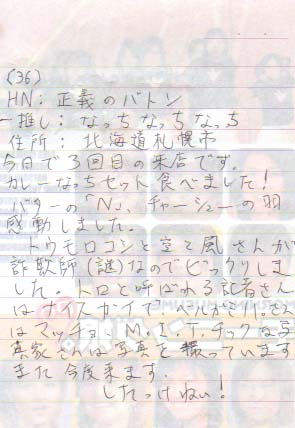 (36)
HN: 正義のバトン
一推し: なっちなっちなっち
住所: 北海道札幌市
今日で3回目の来店です。
カレーなっちセット食べました!
バターの「N」、チャーシューの羽
感動しました。
トウモロコシと空て風さんが
詐欺師(謎)なのでビックリしま
した。トロと呼ばれる記者さん
はナイスガイで、ベールがさ!!。さん
はマッチョ、M.I.Tチックな写
真家さんは写真を撮っています
また今度来ます.
したっけねぃ!